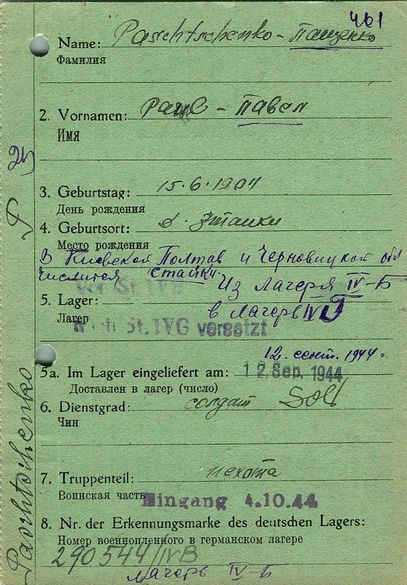 461
Name: Paschtschenko - Пащенко
Фамилия
2. Vornamen: Paul - Павел
Имя
3. Geburtstag: 15.6.1901
День рождения
4. Geburtsort: d.
Место рождения
В Киевской Полтав и Черновицкой обл
числится
Von St. IVB
Из лагеря IV-Б
5. Lager: в лагерь IV
Лагер
nach St. IVG versetzt
12. сент. 1944 г
5a. Im Lager eingeliefert am: 12. Sep. 1944
Доставлен в лагер (число)
6. Dienstgrad: солдат Sold
Чин
7. Truppenteil: пехота
Воинская часть
Eingang 4.10.44
8. Nr. der Erkennungsmarke des deutschen Lagers:
Номер военнопленного в германском лагере
290544/IVB
лагерь IV-Б
Paschtschenko P